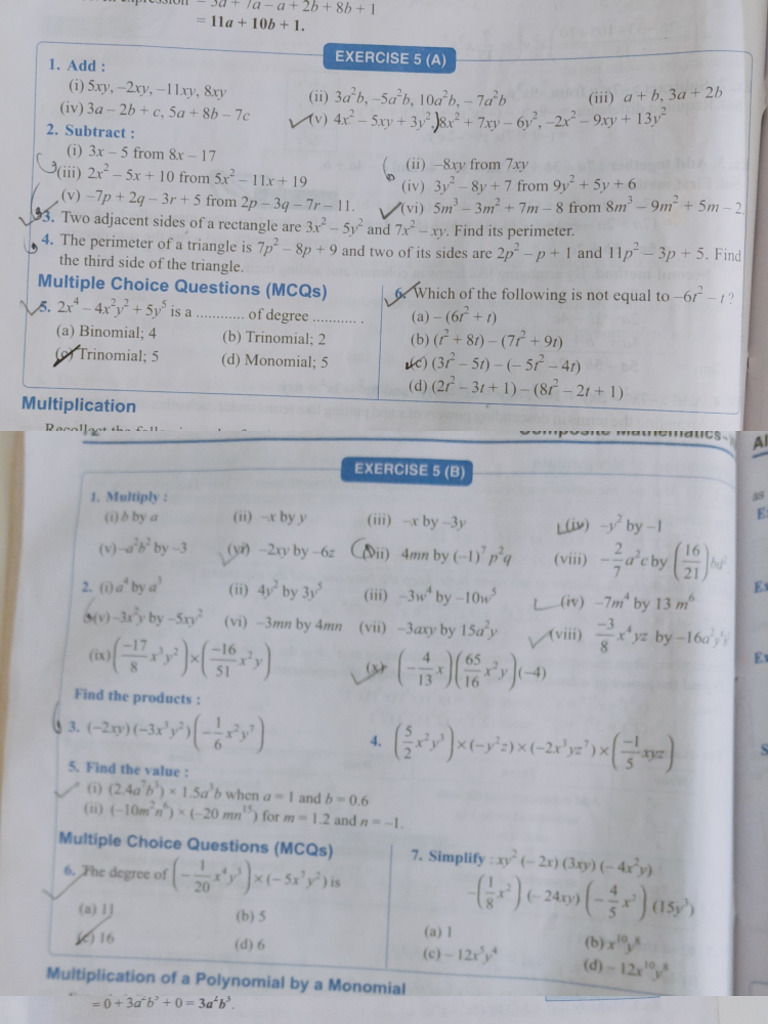 = 3a + 7a – a + 2b + 8b + 1
= 11a + 10b + 1.
EXERCISE 5 (A)
1. Add :
(i) 5xy, –2xy, –11xy, 8xy (ii) 3a²b, –5a²b, 10a²b, – 7a²b (iii) a + b, 3a + 2b
(iv) 3a – 2b + c, 5a + 8b – 7c (v) 4x² – 5xy + 3y², 8x² + 7xy – 6y², –2x² – 9xy + 13y²
2. Subtract :
(i) 3x – 5 from 8x – 17 (ii) –8xy from 7xy
(iii) 2x² – 5x + 10 from 5x² – 11x + 19 (iv) 3y² – 8y + 7 from 9y² + 5y + 6
(v) –7p + 2q – 3r + 5 from 2p – 3q – 7r – 11. (vi) 5m³ – 3m² + 7m – 8 from 8m³ – 9m² + 5m – 2
3. Two adjacent sides of a rectangle are 3x² – 5y² and 7x² – xy. Find its perimeter.
4. The perimeter of a triangle is 7p² – 8p + 9 and two of its sides are 2p² – p + 1 and 11p² – 3p + 5. Find
the third side of the triangle.
Multiple Choice Questions (MCQs)
5. 2x⁴ – 4x²y² + 5y⁵ is a ............ of degree ........... .
(a) Binomial; 4 (b) Trinomial; 2
(c) Trinomial; 5 (d) Monomial; 5
6. Which of the following is not equal to –6t² – t ?
(a) – (6t² + t)
(b) (t² + 8t) – (7t² + 9t)
(c) (3t² – 5t) – (– 5t² – 4t)
(d) (2t² – 3t + 1) – (8t² – 2t + 1)
Multiplication
Composite Mathematics-
EXERCISE 5 (B)
1. Multiply :
(i) b by a (ii) –x by y (iii) –x by –3y (iv) –y² by –1
(v) –a²b² by –3 (vi) –2xy by –6z (vii) 4mn by (–1)⁷ p²q (viii) –2/7 a²c by (16/21)
2. (i) a⁴ by a³ (ii) 4y² by 3y⁵ (iii) –3w⁴ by –10w⁵ (iv) –7m⁴ by 13 m⁶
(v) –3x²y by –5xy² (vi) –3mn by 4mn (vii) –3axy by 15a²y (viii) –3/8 x⁴yz by –16a²
(ix) (–17/8 x³y²) × (–16/51 x²y) (x) (–4/13 x)(65/16 x²y)(–4)
Find the products :
3. (–2xy) (–3x³y²) (–1/6 x²y⁷) 4. (5/2 x²y³) × (–y²z) × (–2x³yz⁷) × (–1/5 xyz)
5. Find the value :
(i) (2.4a⁷b³) × 1.5a³b when a = 1 and b = 0.6
(ii) (–10m²n⁶) × (–20 mn¹⁵) for m = 1.2 and n = –1.
Multiple Choice Questions (MCQs)
6. The degree of (–1/20 x⁴y³) × (–5x⁷y²) is
(a) 11 (b) 5
(c) 16 (d) 6
7. Simplify : xy² (– 2x) (3xy) (– 4x²y)
–(1/8 x²) (– 24xy) (–4/5 x²) (15y³)
(a) 1 (b) x¹⁰y⁸
(c) – 12x⁵y⁴ (d) – 12x¹⁰y⁸
Multiplication of a Polynomial by a Monomial
= 0 + 3a²b³ + 0 = 3a²b³.